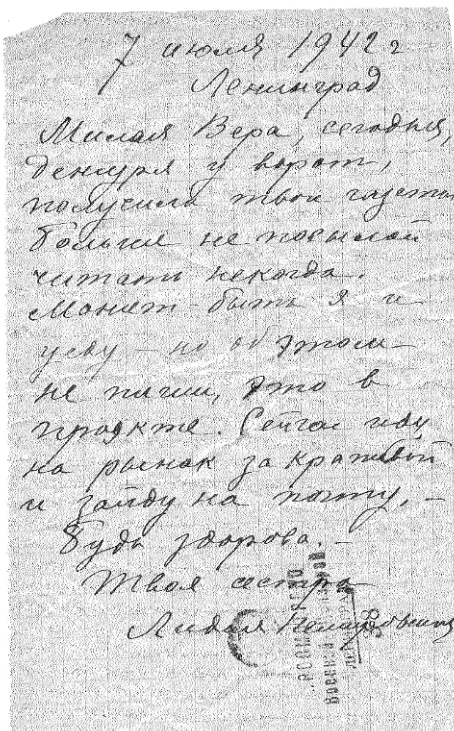 7 июля 1942 г
Ленинград
Милая Вера, сегодня,
дежуря у ворот,
получила твои газеты
больше не посылай
читать некогда.
Может быть я и
уеду – но об этом
не пиши, это в
проэкте. Сейчас иду
на рынок за крапивой
и зайду на почту. –
Будь здорова. –
Твоя сестра
Лидия